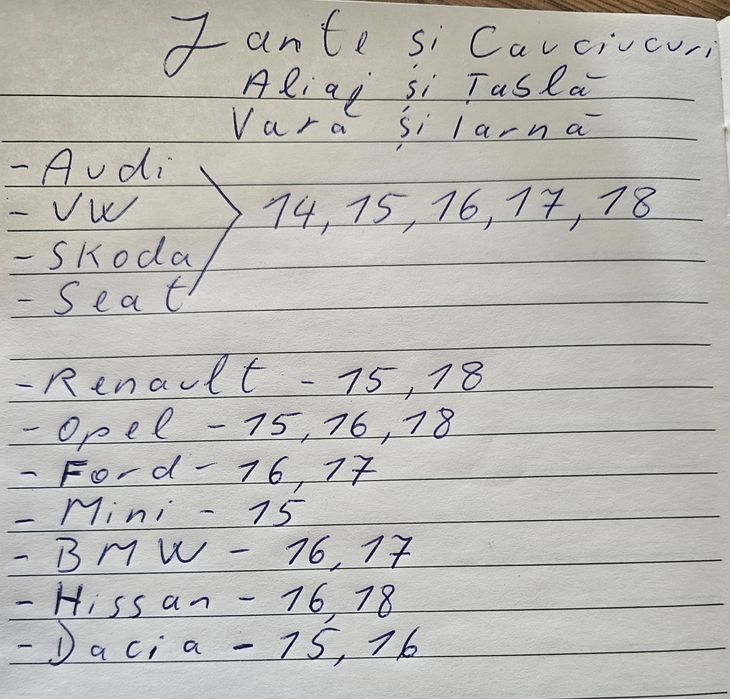 Jante și Cauciucuri
Aliaj și Tablă
Vară și Iarnă
- Audi
- VW
- Skoda
- Seat
14, 15, 16, 17, 18
- Renault - 15, 18
- Opel - 15, 16, 18
- Ford - 16, 17
- Mini - 15
- BMW - 16, 17
- Nissan - 16, 18
- Dacia - 15, 16